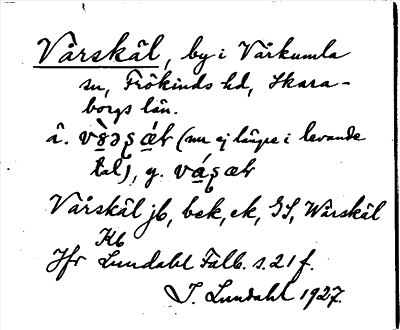 Vårskäl, by i Vårkumla
sn, Frökinds hd, Skara-
borgs län.
ä. (nu ej längre i levande
tal), y.
Vårskäl jb, bek, ek, GS, Wårskäl
Kb
Jfr Lundahl Falb. s. 21 f.
I. Lundahl 1927.